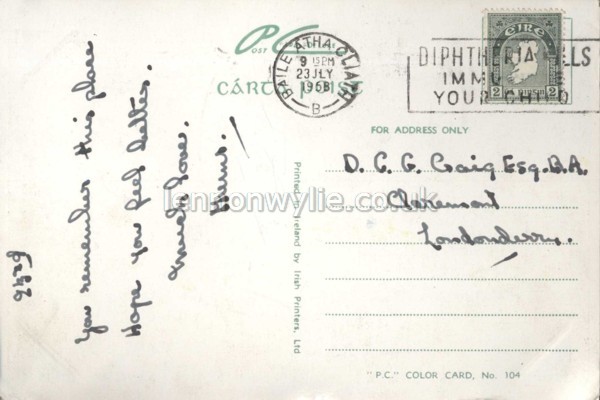 PC
POST CARD
CÁRTA PUIST
BAILE ÁTHA CLIATH
9 15PM
23 JLY
1958
B
DIPHTHERIA KILLS
IMMUNISE
YOUR CHILD
ÉIRE
2 2
FOR ADDRESS ONLY
D. C. G. Craig Esq. B.A.
Claremont
Londonderry.
You remember this place
Hope you feel better.
Much love.
Mums.
Printed in Ireland by Irish Printers, Ltd
lennonwylie.co.uk
"P.C." COLOR CARD, No. 104